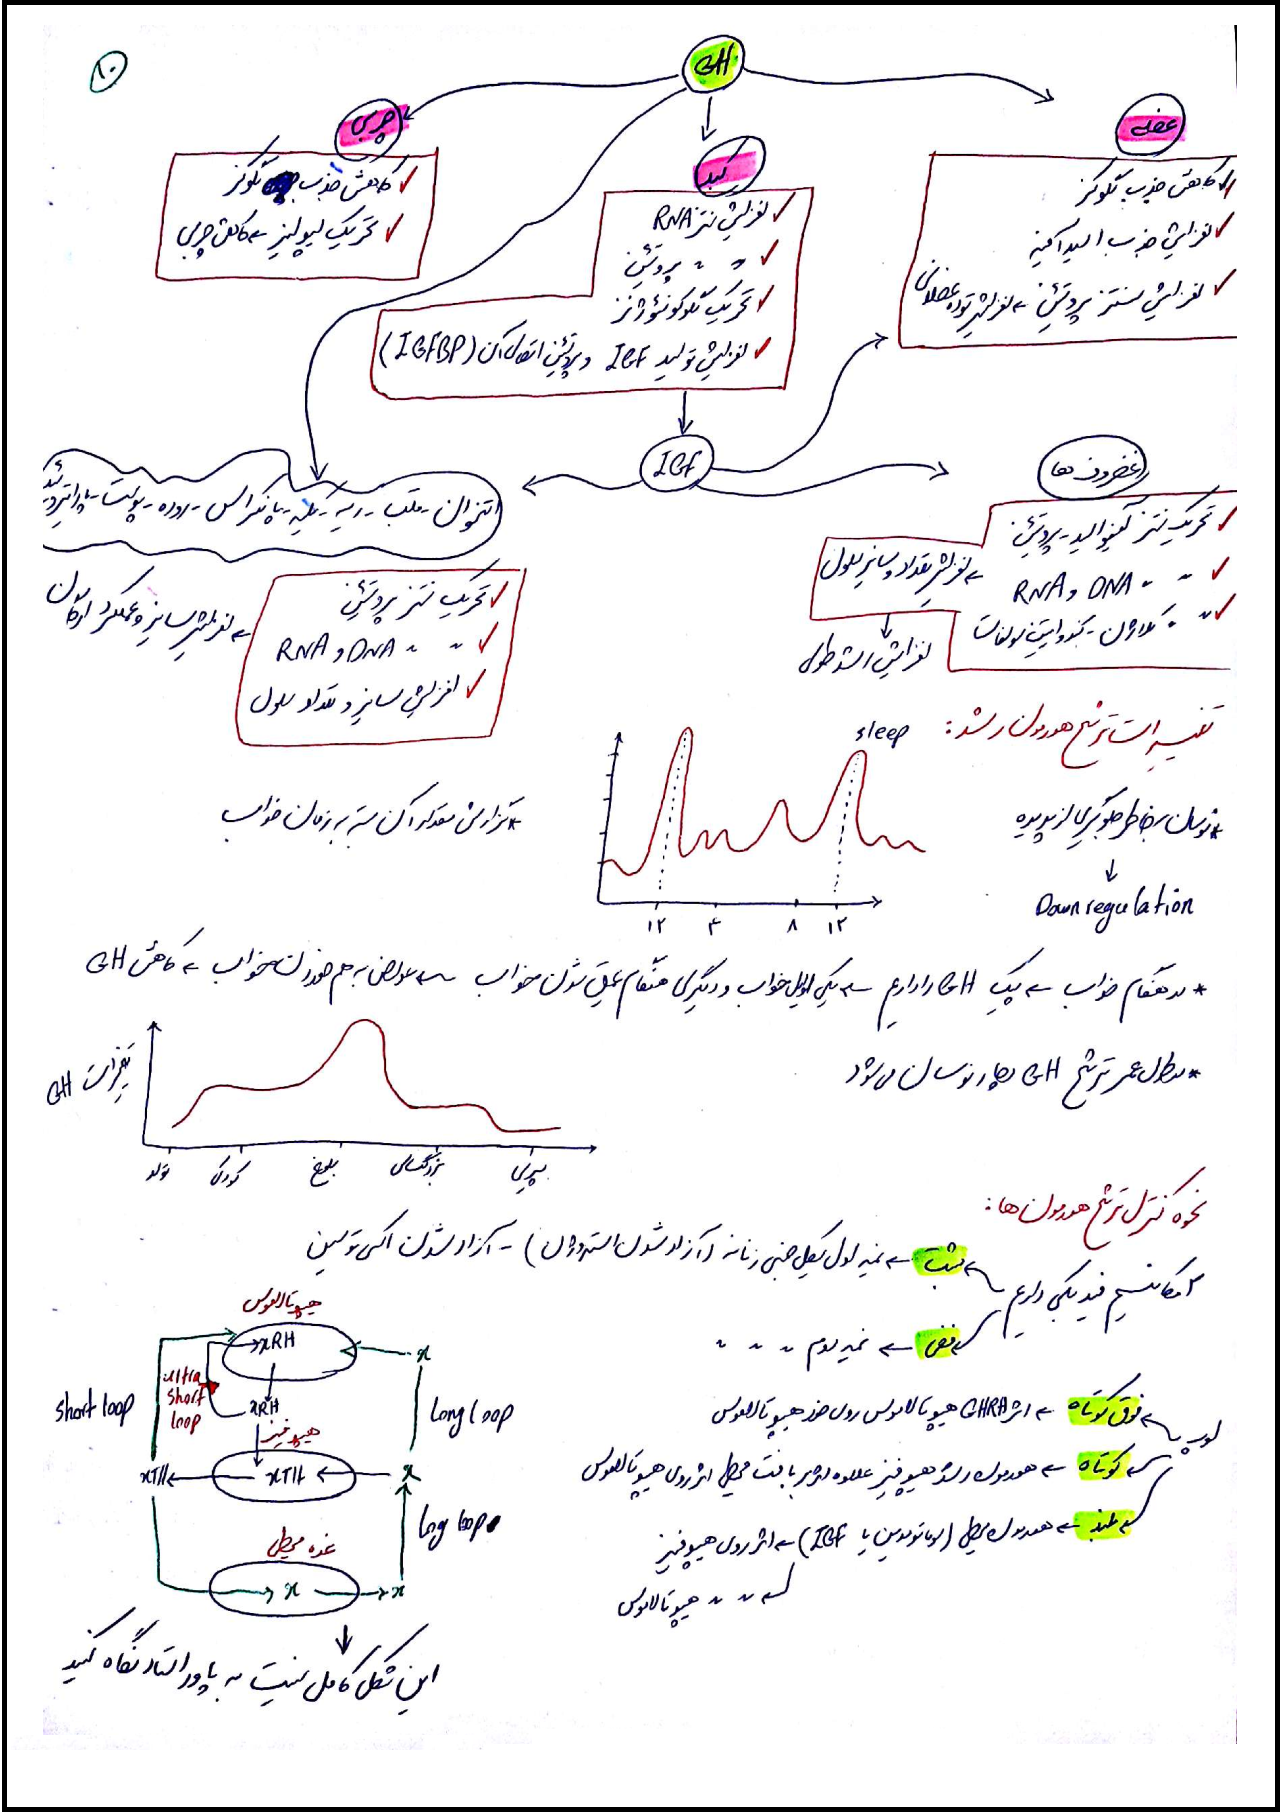 ۱۰
GH
چربی
✓ کاهش جذب گلوکز
✓ تحریک لیپولیز ← کاهش چربی
کبد
✓ افزایش سنتز RNA
✓ 〃 〃 پروتئین
✓ تحریک گلوکونئوژنز
✓ افزایش تولید IGF و پروتئین اتصالی آن (IGFBP)
عضله
✓ کاهش جذب گلوکز
✓ افزایش جذب اسید آمینه
✓ افزایش سنتز پروتئین ← افزایش توده عضلانی
IGF
غضروف ها
✓ تحریک سنتز آمینو اسید - پروتئین
✓ 〃 〃 DNA و RNA
✓ 〃 〃 کلاژن - کندروایتین سولفات
← افزایش تعداد و سایز سلول
افزایش رشد طولی
استخوان - قلب - ریه - کلیه - پانکراس - روده - پوست - پاراتیروئید
✓ تحریک سنتز پروتئین
✓ 〃 〃 DNA و RNA
✓ افزایش سایز و تعداد سلول
← افزایش سایز و عملکرد ارگان
تغییرات ترشح هورمون رشد:
sleep
۱۲ ۴ ۸ ۱۲
* نوسان بخاطر جلوگیری از پدیده
Down regulation
* گزارش مقدار آن بسته به زمان خواب
* در هنگام خواب ← پیک GH را داریم ← یکی اوایل خواب و دیگری هنگام عمیق شدن خواب ← عوارض به هم خوردن خواب ← کاهش GH
* در طول عمر ترشح GH دچار نوسان می‌شود
تغییرات GH
تولد کودکی بلوغ بزرگسالی پیری
نحوه کنترل ترشح هورمون ها:
۲ مکانیسم فیدبکی داریم
مثبت ← نیمه اول سیکل جنسی زنانه (آزاد شدن استروژن) - آزاد شدن اکسی توسین
منفی ← نیمه دوم 〃 〃 〃
لوپ
فوق کوتاه ← اثر GHRH هیپوتالاموس روی خود هیپوتالاموس
کوتاه ← هورمون رشد هیپوفیز علاوه بر اثر بر بافت محیطی اثر روی هیپوتالاموس
بلند ← هورمون محیطی (سوماتومدین یا IGF) ← اثر روی هیپوفیز
← 〃 〃 هیپوتالاموس
هیپوتالاموس
xRH
x
short loop
ultra short loop
xRH
long loop
هیپوفیز
xTH
xTH
x
long loop
غده محیطی
x
x
این شکل کامل نیست به پاور استاد نگاه کنید